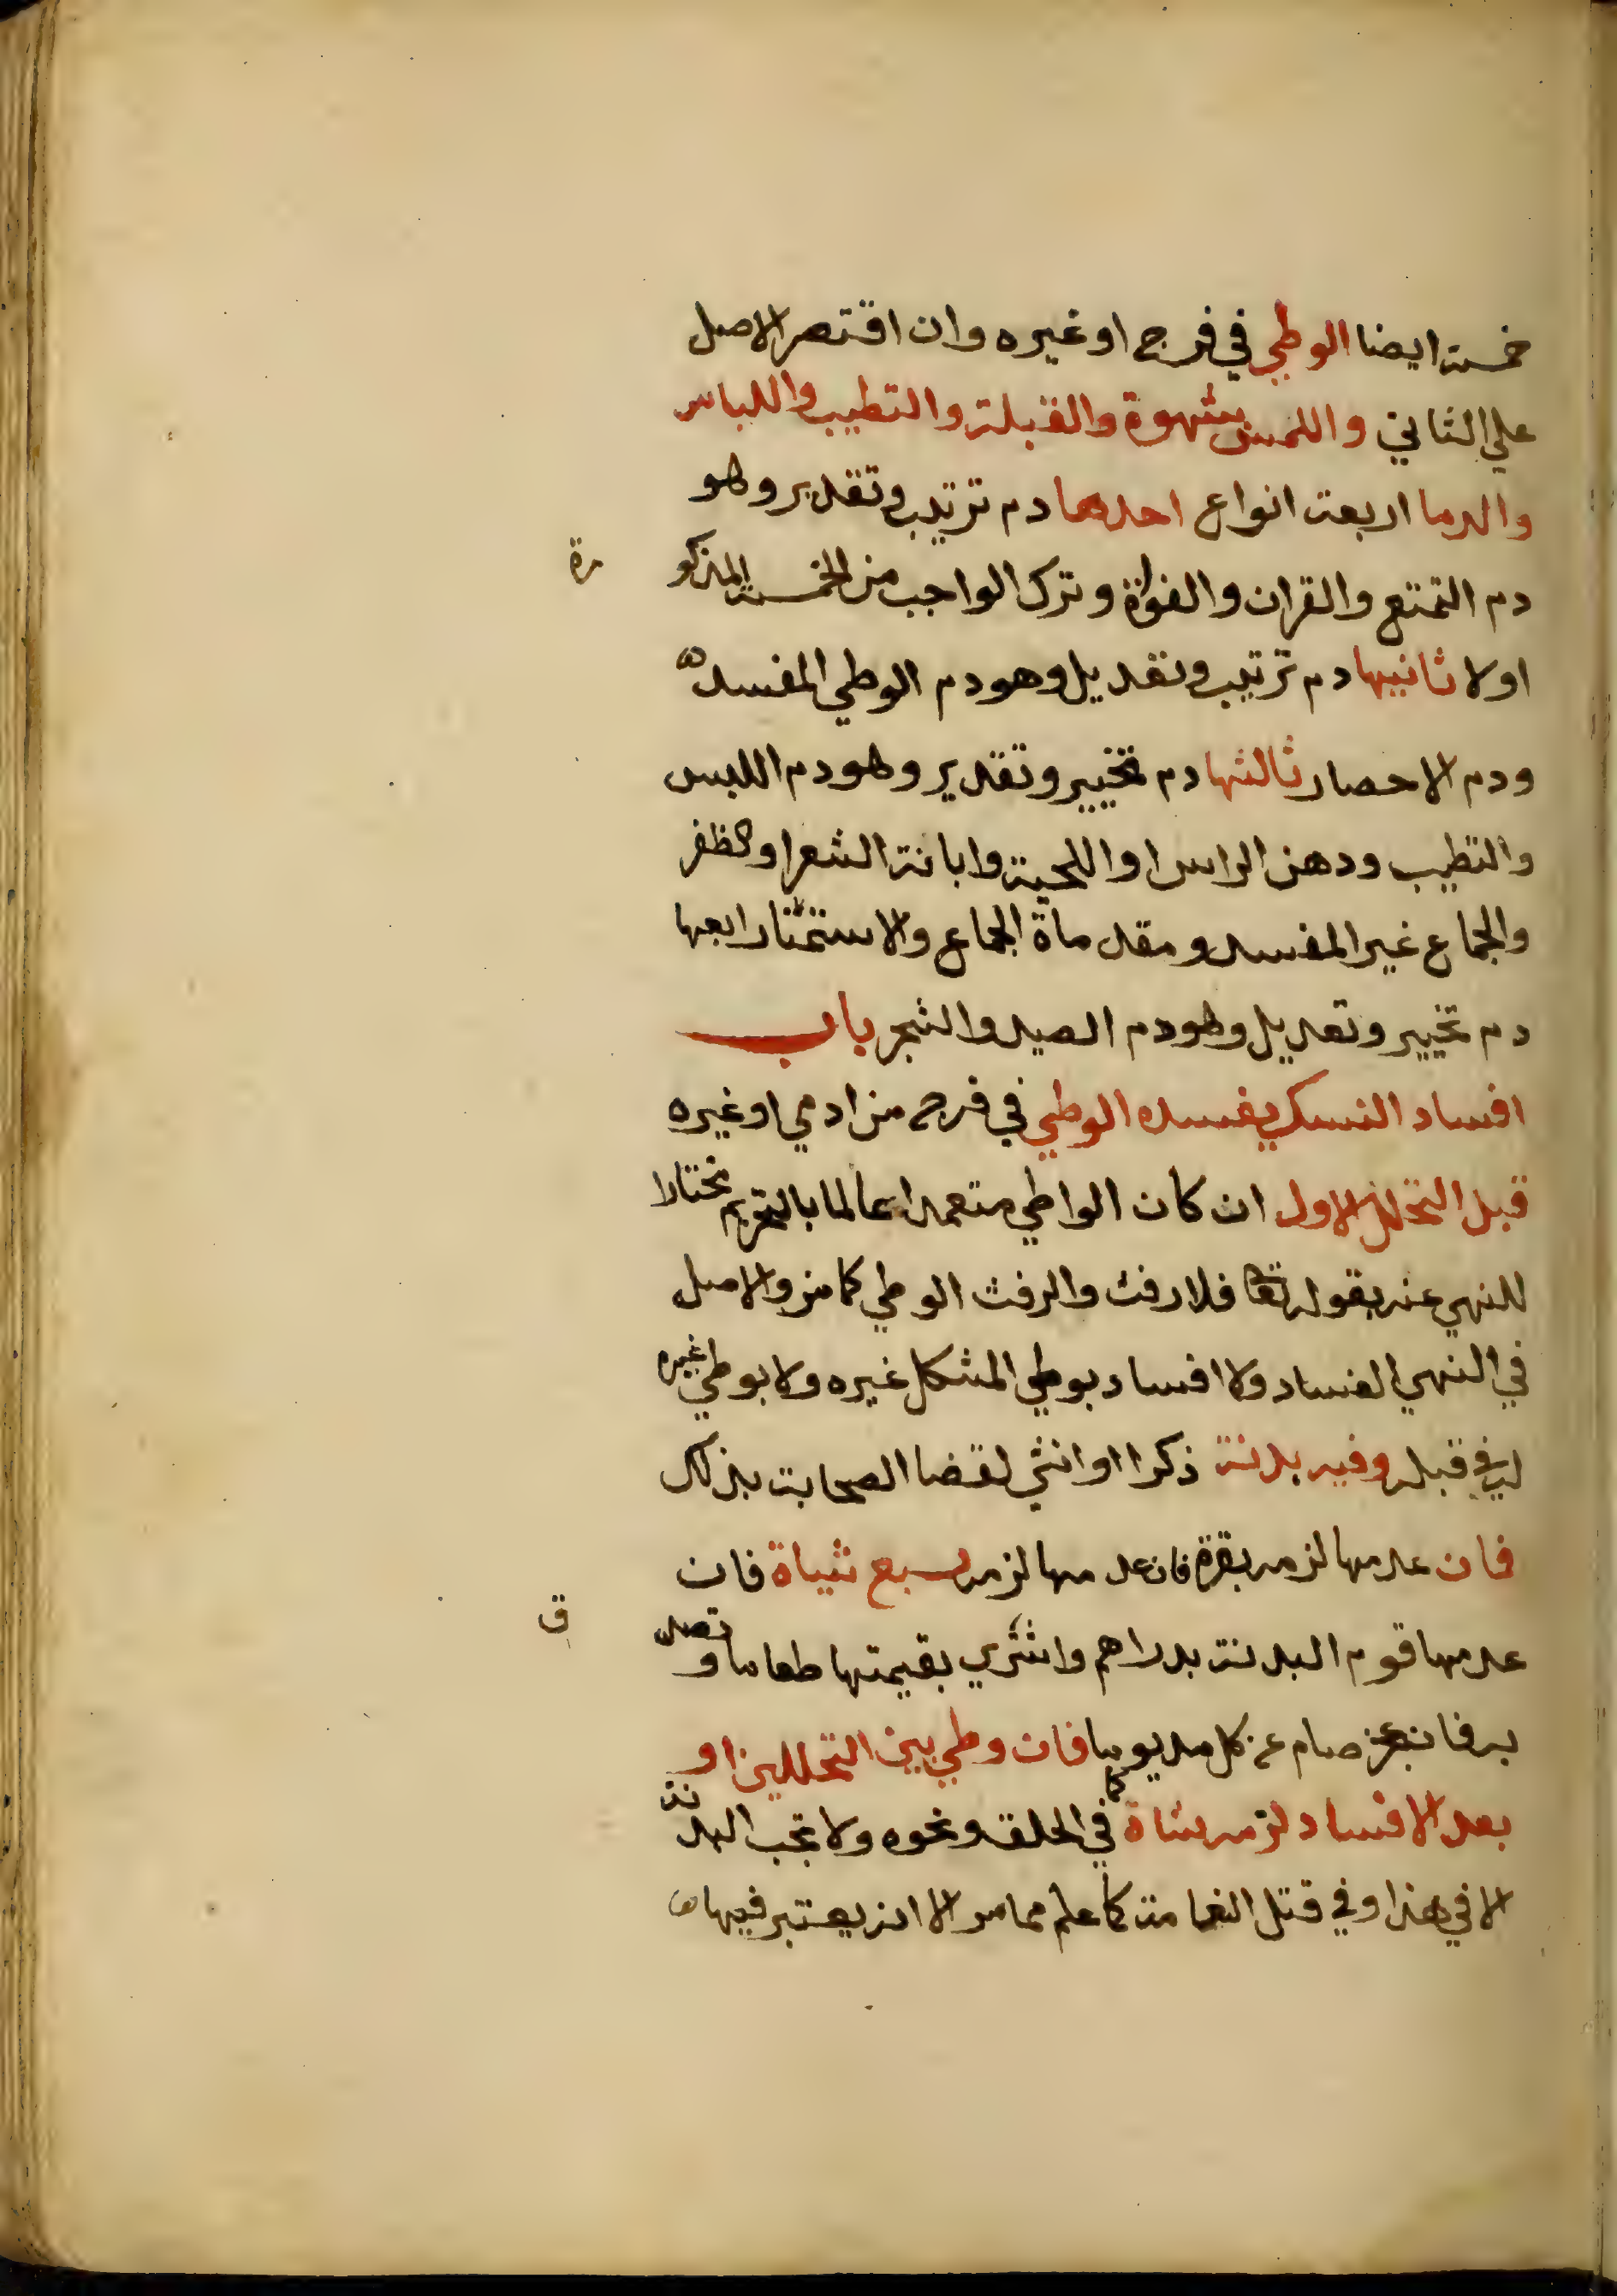 خمسة ايضا الوطي في فرج او غيره وان اقتصر الاصل
علي الثاني واللمس بشهوة والقبلة والتطيب واللباس
والدما اربعة انواع احدها دم ترتيب وتقدير وهو
دم التمتع والقران والفوات وترك الواجب من الخمسة المذكو رة
اولا ثانيها دم ترتيب وتعديل وهو دم الوطي المفسد
ودم الاحصار ثالثها دم تخيير وتقدير وهو دم اللبس
والتطيب ودهن الراس او اللحية وابانة الشعر او الظفر
والجماع غير المفسد ومقدماة الجماع والاستمتاع رابعها
دم تخيير وتعديل وهو دم الصيد والشجر باب
افساد النسك يفسده الوطي في فرج من ادمي او غيره
قبل التحلل الاول ان كان الواطي متعمدا عالما بالتحريم مختارا
للنهي عنه بقوله تعا فلا رفث والرفث الوطي كما مر والاصل
في النهي الفساد ولا افساد بوطي المشكل غيره ولا بوطي غيره
له في قبله وفيه بدنة ذكرا او انثي لقضا الصحابة بذلك
فان عدمها لزمه بقرة فان عدمها لزمه سبع شياة فان
عدمها قوم البدنة بدراهم واشتري بقيمتها طعاما وتصد ق
به فان عجز صام عن كل مد يوما فان وطي بين التحللين او
بعد الافساد لزمه شاة كما في الحلق ونحوه ولا تجب البدنة
الا في هذا وفي قتل النعامة كما علم مما مر الا انه يعتبر فيها